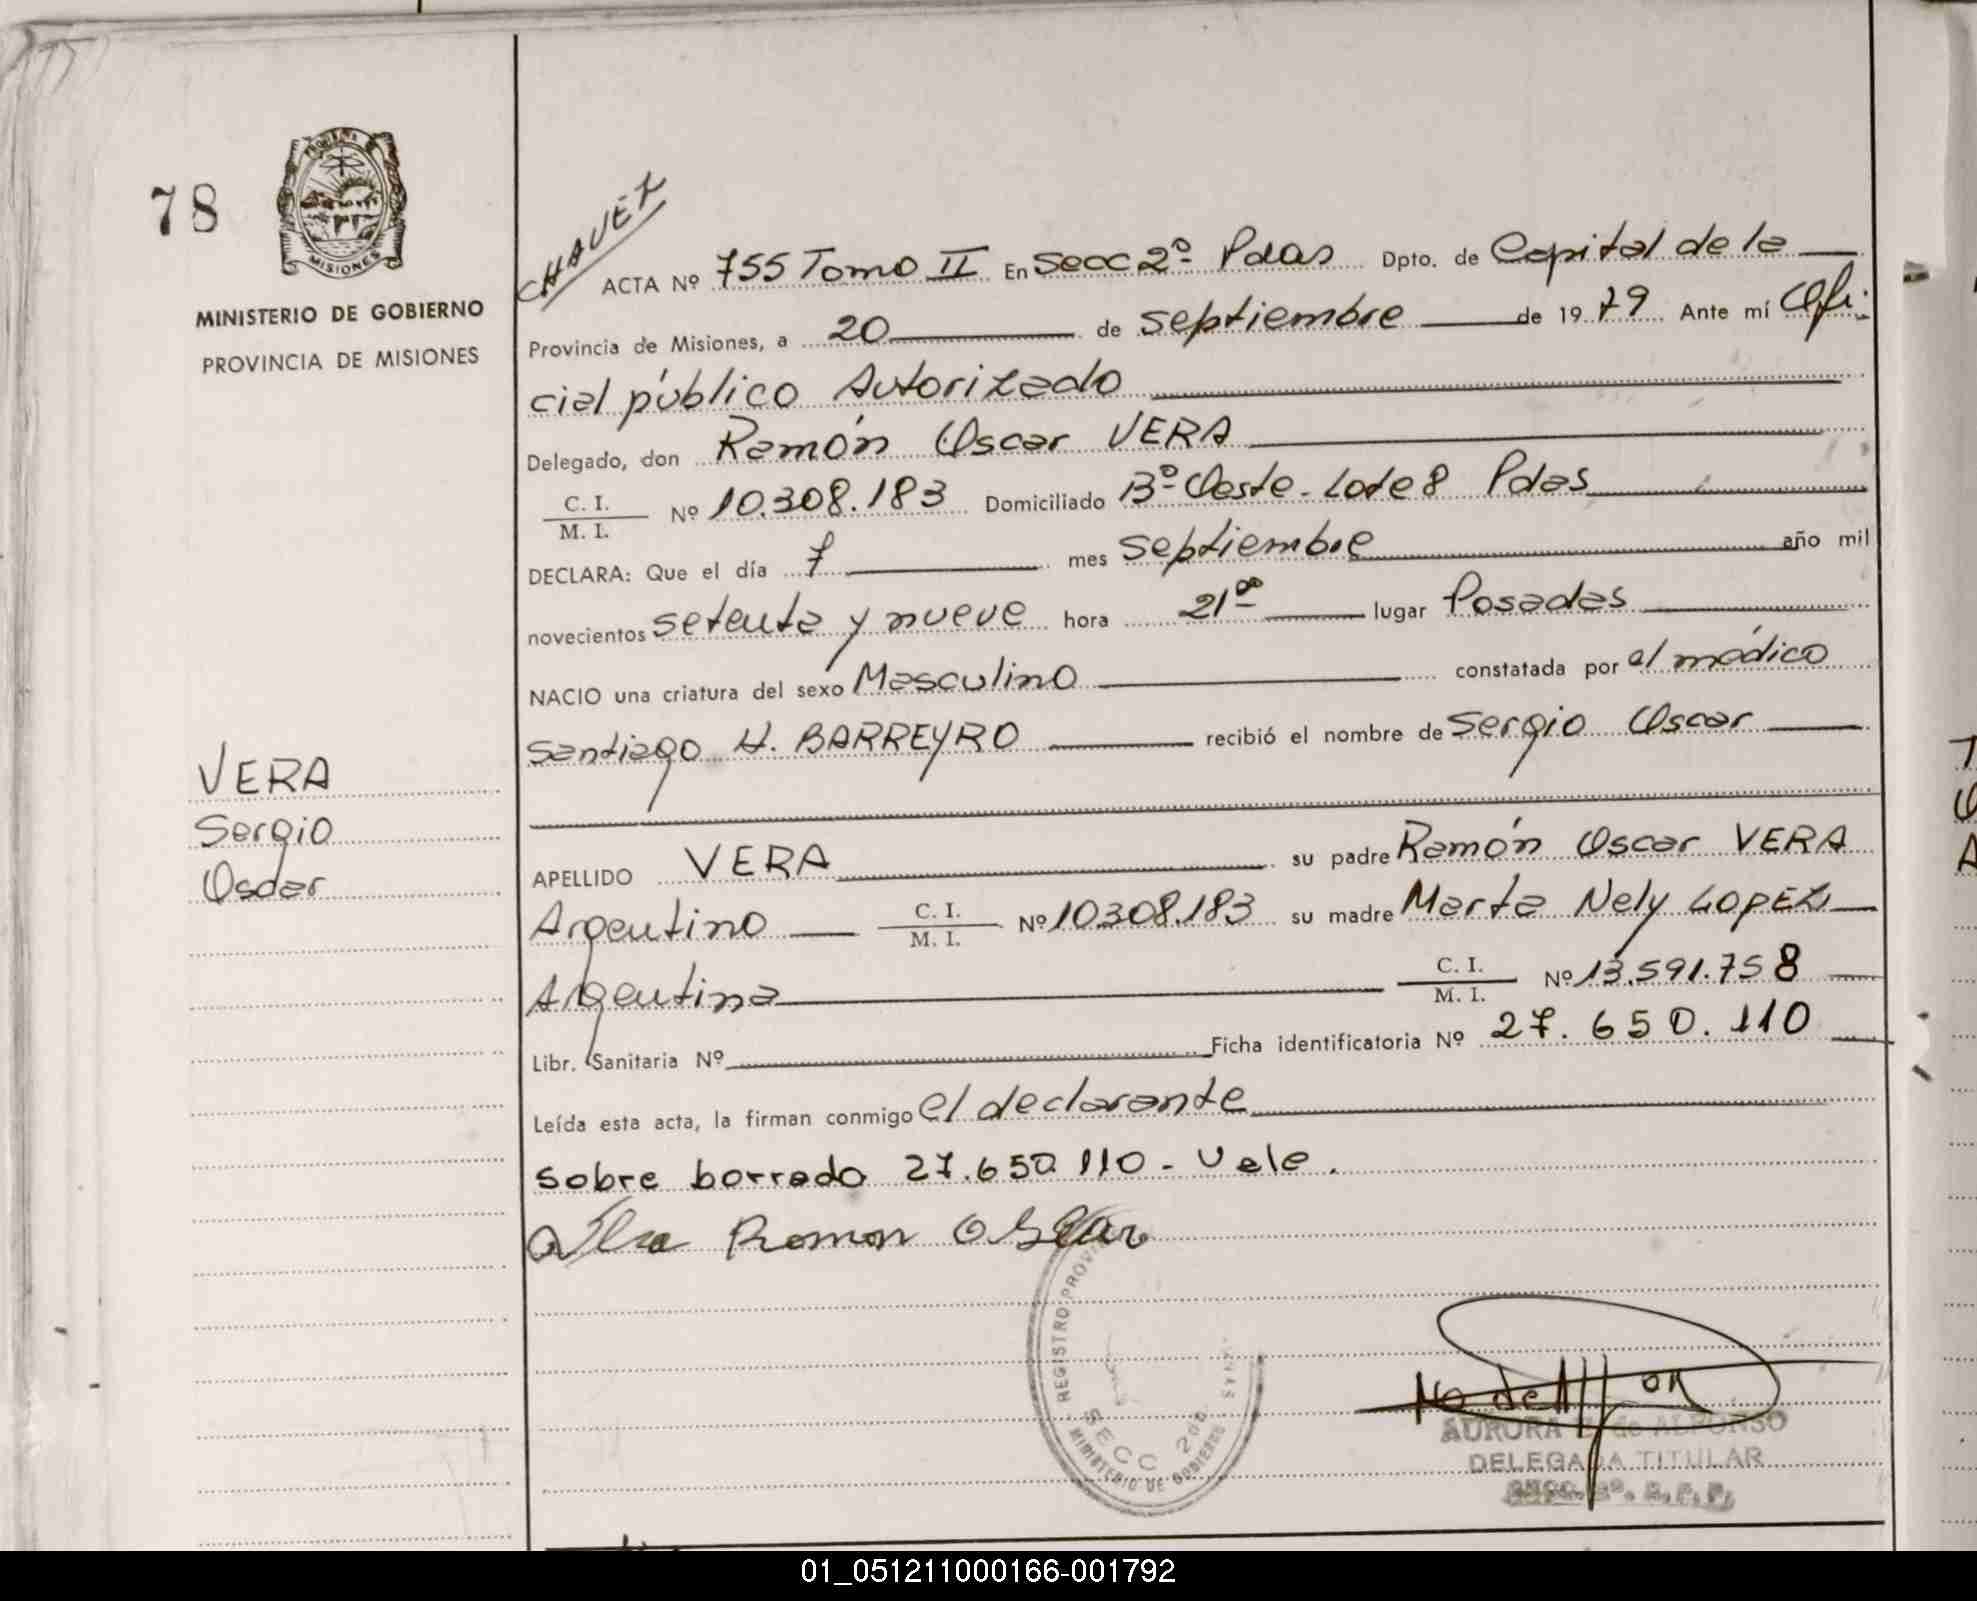 78
PROVINCIA DE
MISIONES
MINISTERIO DE GOBIERNO
PROVINCIA DE MISIONES
VERA
Sergio
Oscar
CHAVEZ
ACTA Nº 755 Tomo II En Secc 2º Pdas Dpto. de Capital de la
Provincia de Misiones, a 20 de septiembre de 1979 Ante mí Ofi-
cial público Autorizado
Delegado, don Ramón Oscar VERA
C. I.
M. I. Nº 10.308.183 Domiciliado Bº Oeste - Lote 8 Pdas
DECLARA: Que el día 7 mes septiembre año mil
novecientos setenta y nueve hora 21ºº lugar Posadas
NACIO una criatura del sexo Masculino constatada por el médico
Santiago H. BARREYRO recibió el nombre de Sergio Oscar
APELLIDO VERA su padre Ramón Oscar VERA
Argentino C. I. M. I. Nº 10.308.183 su madre Marta Nely LOPEZ
Argentina C. I. M. I. Nº 13.591.758
Libr. Sanitaria Nº Ficha identificatoria Nº 27.650.110
Leída esta acta, la firman conmigo el declarante
sobre borrado 27.650.110 - Vale.
Ramon Oscar
REGISTRO PROVI
SECC 2da
MINISTERIO DE GOBIERNO
AURORA de ALFONSO
DELEGADA TITULAR
SECC. 2º. R. P. P.
01_051211000166-001792